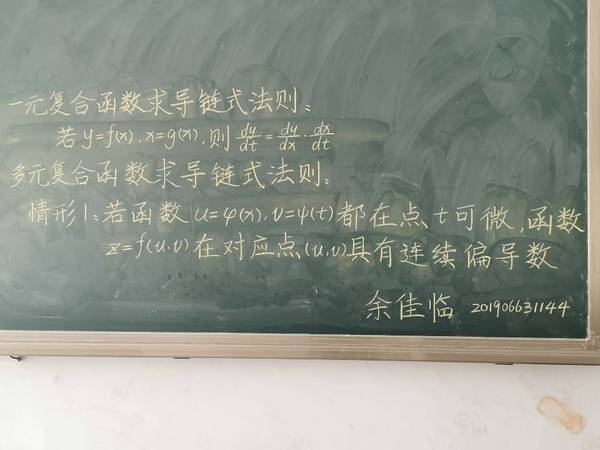 一元复合函数求导链式法则:
若 y=f(x), x=g(x), 则 dy/dt = dy/dx · dx/dt
多元复合函数求导链式法则:
情形1:若函数 u=φ(x), v=ψ(t) 都在点 t 可微, 函数
z=f(u,v) 在对应点 (u,v) 具有连续偏导数
余佳临 201906631144